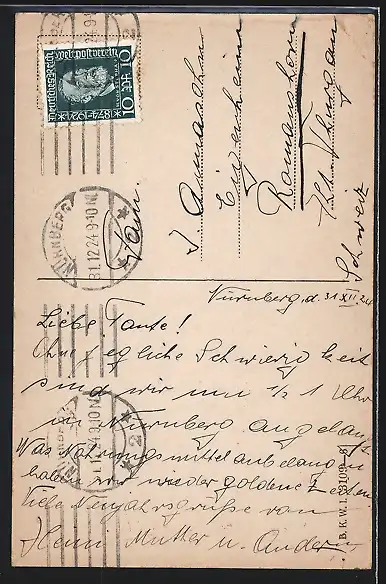 Deutsches Reich
Weltpostverein
10 10
1874 * 1924
NÜRNBERG
31.12.24.9-10 N.
* * 2
Fam.
J. Ammann
Eigenheim
Romanshorn
Kt. Thurgau
Schweiz
Nürnberg, d. 31.XII.24
Liebe Tante!
Ohne jegliche Schwierigkeit
sind wir um 1/2 1 Uhr
in Nürnberg angelangt.
Was Nahrungsmittel anbelangt
haben wir wieder goldene Zeiten.
Viele Neujahrsgrüße von
Mutter u.
B.K.W.I.